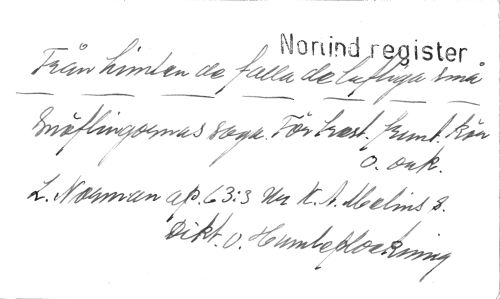 Norlind register
Från himlen de falla de luftiga små
Snöflingornas saga. För krast. frunt. kör
o. ork.
L. Norman op. 63:3 ur K. A. Melins s.
Dikt. o. Humleplockning